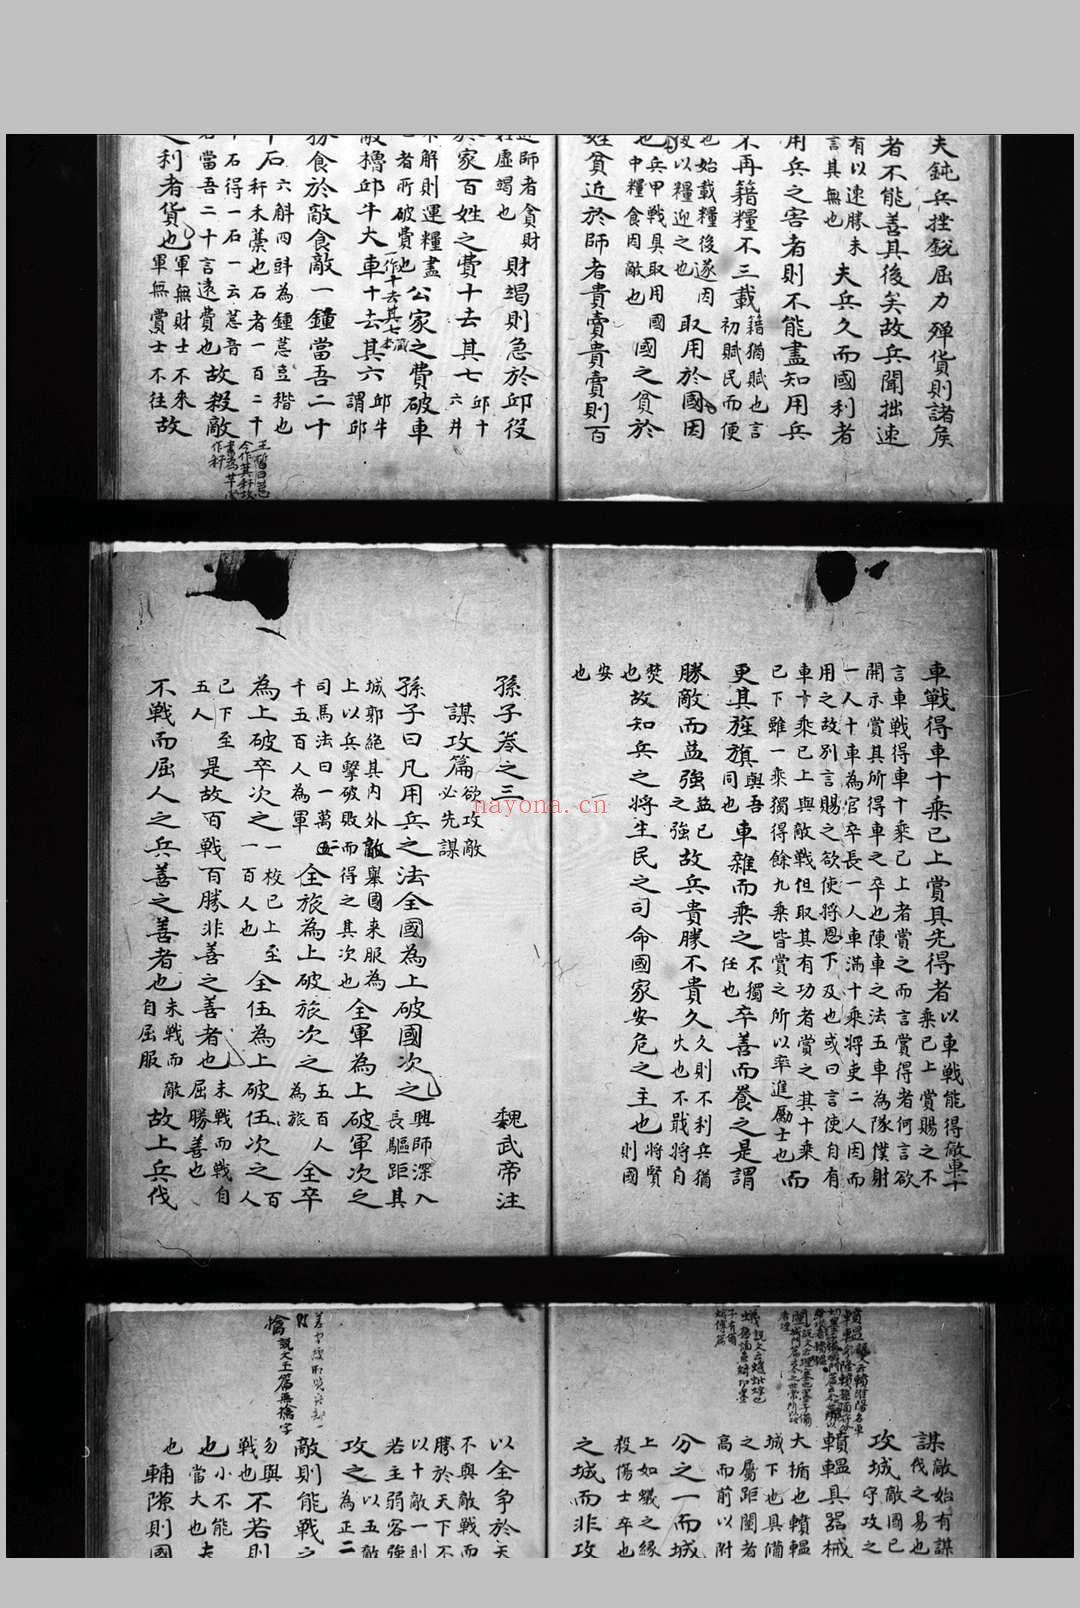 夫鈍兵挫銳屈力殫貨則諸侯
者不能善其後矣故兵聞拙速
有以速勝未
言其無也
夫兵久而國利者
用兵之害者則不能盡知用兵
不再籍糧不三載
籍猶賦也言
初賦民而便
也始載糧後遂因
以糧迎之也
取用於國因
兵甲戰具取用國
中糧食因敵也
國之貧於
姓貧近於師者貴賣貴賣則百
師者貪財
虛竭也
財竭則急於邱役
家百姓之費十去其七
邱十
六井
解則運糧盡
者所破費也
公家之費破車
敵櫓邱牛大車十去其六
邱牛
謂邱
食於敵食敵一鍾當吾二十
六斛四㪷為鍾
石
秆禾藁也石者一百二十
石得一石一云
音
當吾二十言遠費也
故殺敵
利者貨也
軍無財士不來
軍無賞士不往
故
車戰得車十乘已上賞其先得者
以車戰能得敵車十
乘已上賞賜之不
言車戰得車十乘已上者賞之而言賞得者何言欲
開示賞其所得車之卒也陳車之法五車為隊僕射
一人十車為官卒長一人車滿十乘將吏二人因而
用之故別言賜之欲使將恩下及也或曰言使自有
車十乘已上與敵戰但取其有功者賞之其十乘
已下雖一乘獨得餘九乘皆賞之所以率進勵士也
而
更其旌旗
與吾
同也
車雜而乘之
不獨
任也
卒善而養之是謂
勝敵而益強
益己
之強
故兵貴勝不貴久
久則不利兵猶
火也不戢將自
焚
也
故知兵之將生民之司命國家安危之主也
將賢
則國
安
也
孫子卷之三
魏武帝注
謀攻篇
欲攻敵
必先謀
孫子曰凡用兵之法全國為上破國次之
興師深入
長驅距其
城郭絕其內外敵舉國來服為
上以兵擊破敗而得之其次也
全軍為上破軍次之
司馬法曰一萬二
千五百人為軍
全旅為上破旅次之
五百人
為旅
全卒
為上破卒次之
一校已上至
一百人也
全伍為上破伍次之
百人
已下至
五人
是故百戰百勝非善之善者也
未戰而戰自
屈勝善也
不戰而屈人之兵善之善者也
未戰而敵
自屈服
故上兵伐
謀
敵始有謀
伐之易也
攻城
敵國已
守攻之
轒轀具器械
大楯也轒轀
城下也具備
之屬距闉者
高而前以附
分之一而城
上如蟻之緣
殺傷士卒也
之城而非攻
以全争於天
不與敵戰而
勝於天下不
以十敵一則
若主弱客強
攻之
以五敵
為正二
敵則能戰之
勿與
戰也
不若則
小不能
當大也
夫
也
輔隙則國